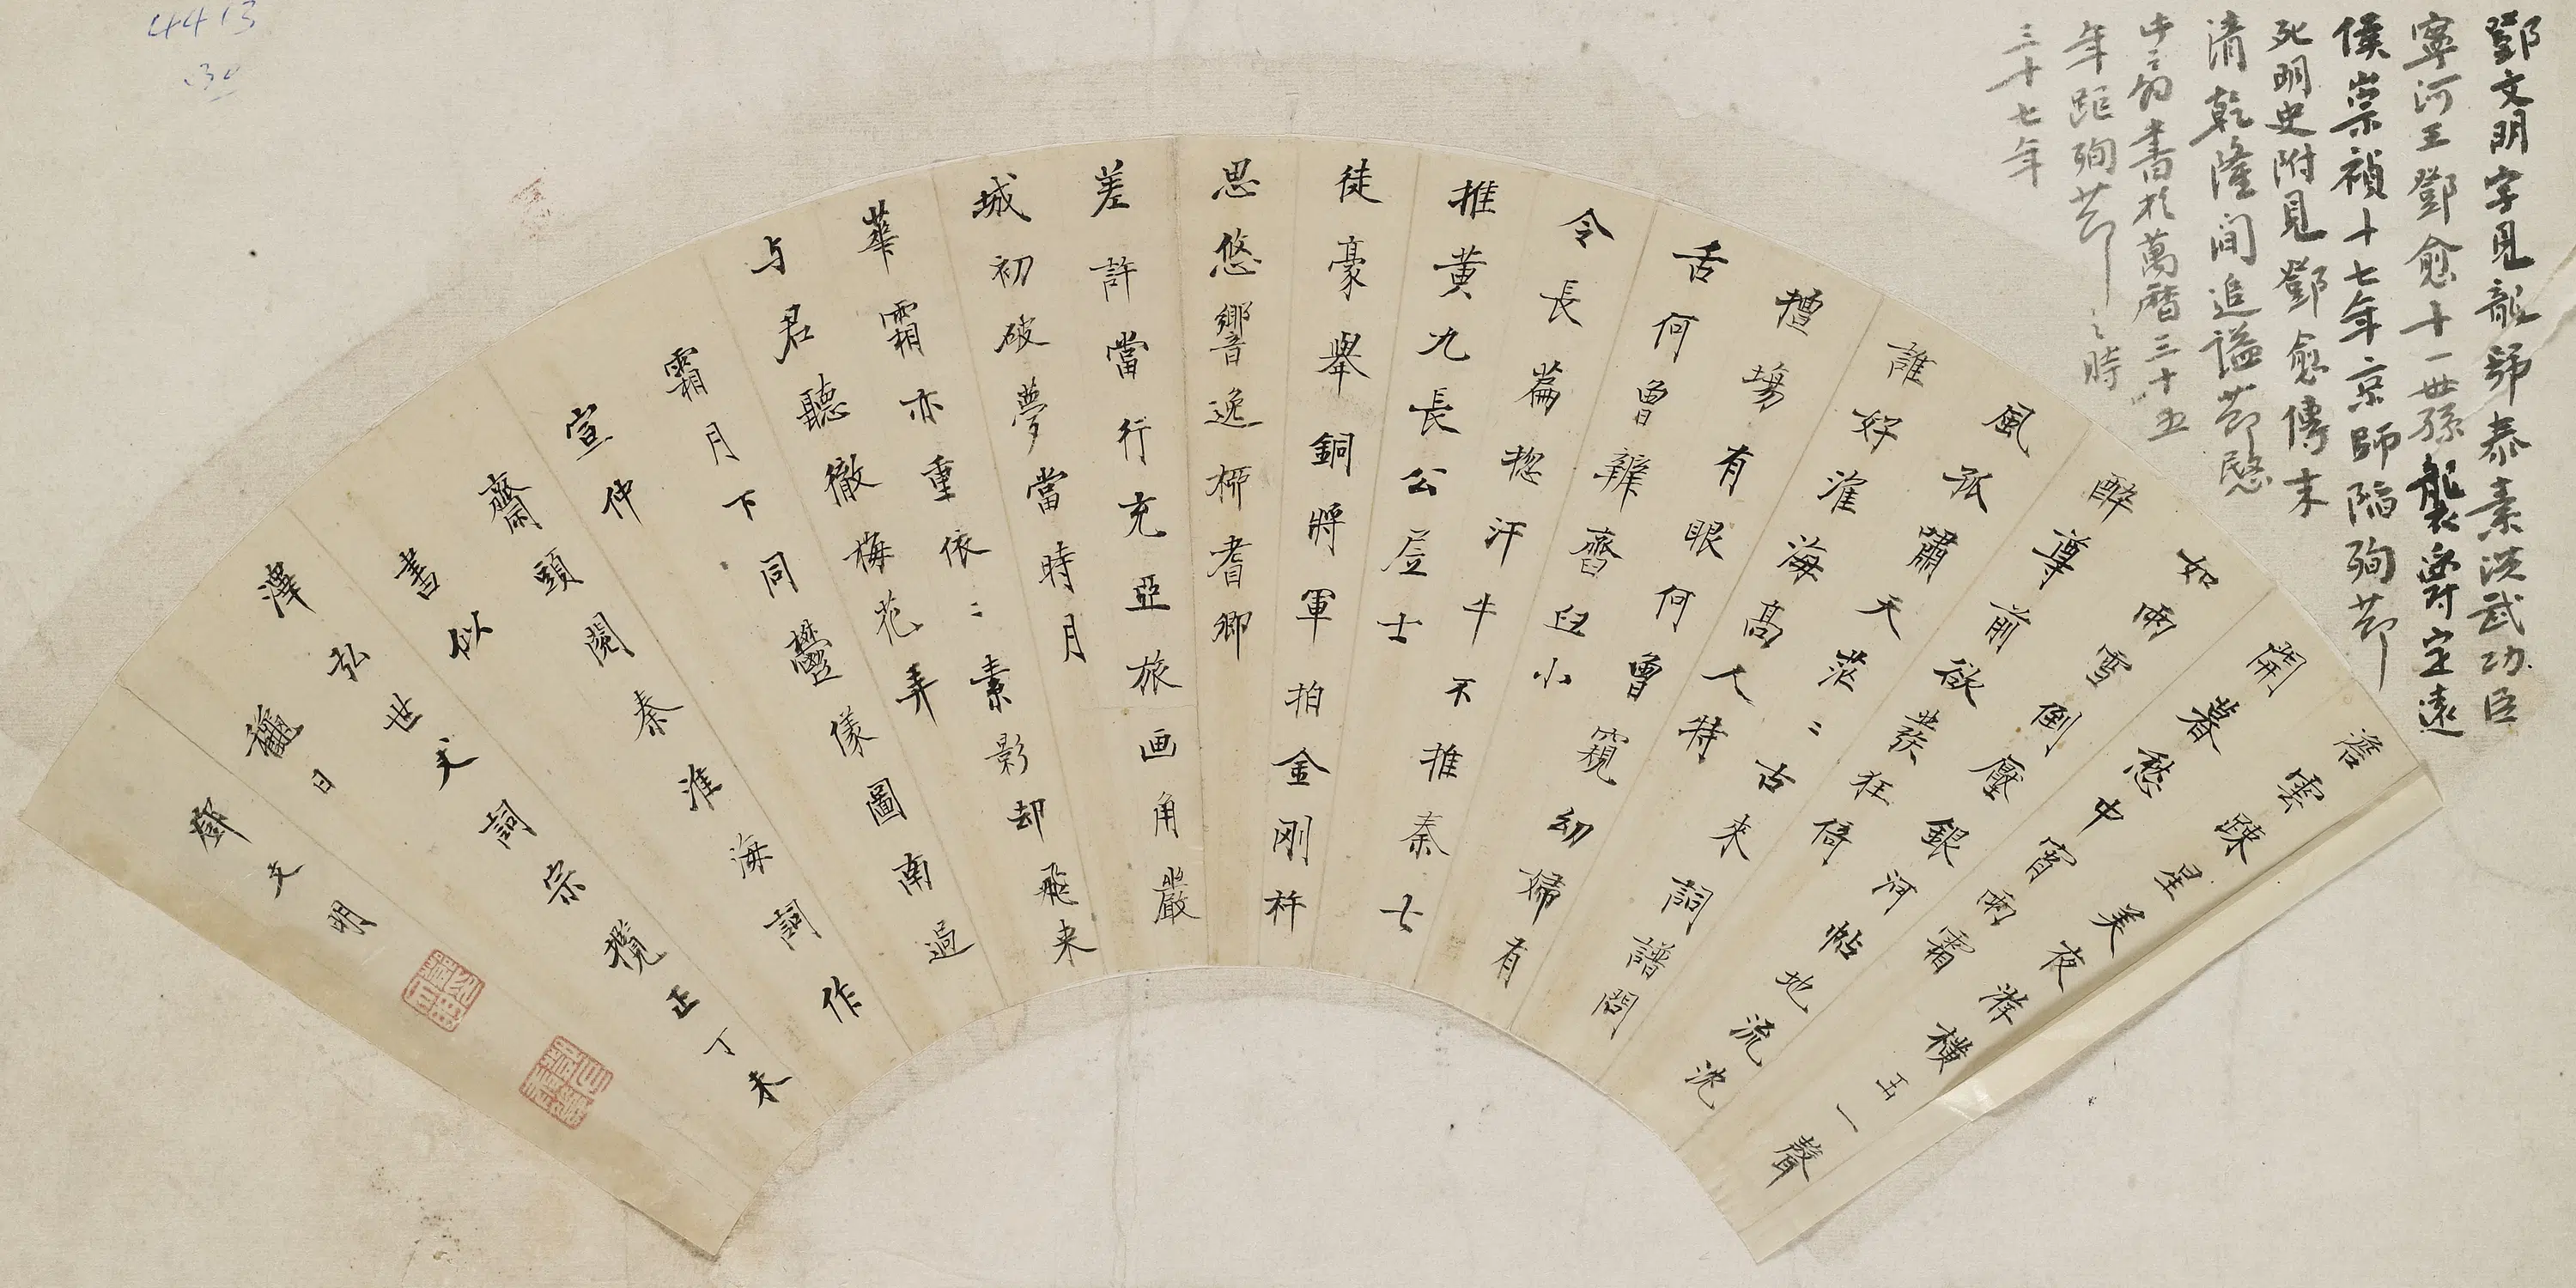 鄧文明字見龍號泰素洪武功臣
寧河王鄧愈十一世孫襲爵定遠
侯崇禎十七年京師陷殉節
死明史附見鄧愈傳末
清乾隆間追謚節愍
此扇書於萬曆三十五
年距殉節之時
三十七年
澹雲疎星美夜游橫玉一聲
開暮愁中宵雨霜
如雨雪倒壓銀河帖地流沈
醉尊前欲發狂倚
風孤嘯天茫〻古来詞譜問
誰好淮海高人特
擅場有眼何曾窺幼婦有
舌何曾辨齏臼小
令長篇惣汗牛不推秦七
推黃九長公居士
徒豪舉銅將軍拍金剛杵
思悠響逸柳耆卿
差許當行充亞旅画角嚴
城初破夢當時月
華霜亦重依〻素影却飛来
与君聽徹梅花弄
霜月下同鬱儀圖南過
宣仲
齋頭閱秦淮海詞作
書似
澤弘世丈詞宗攬正丁未
龝日
鄧文明
4413
30